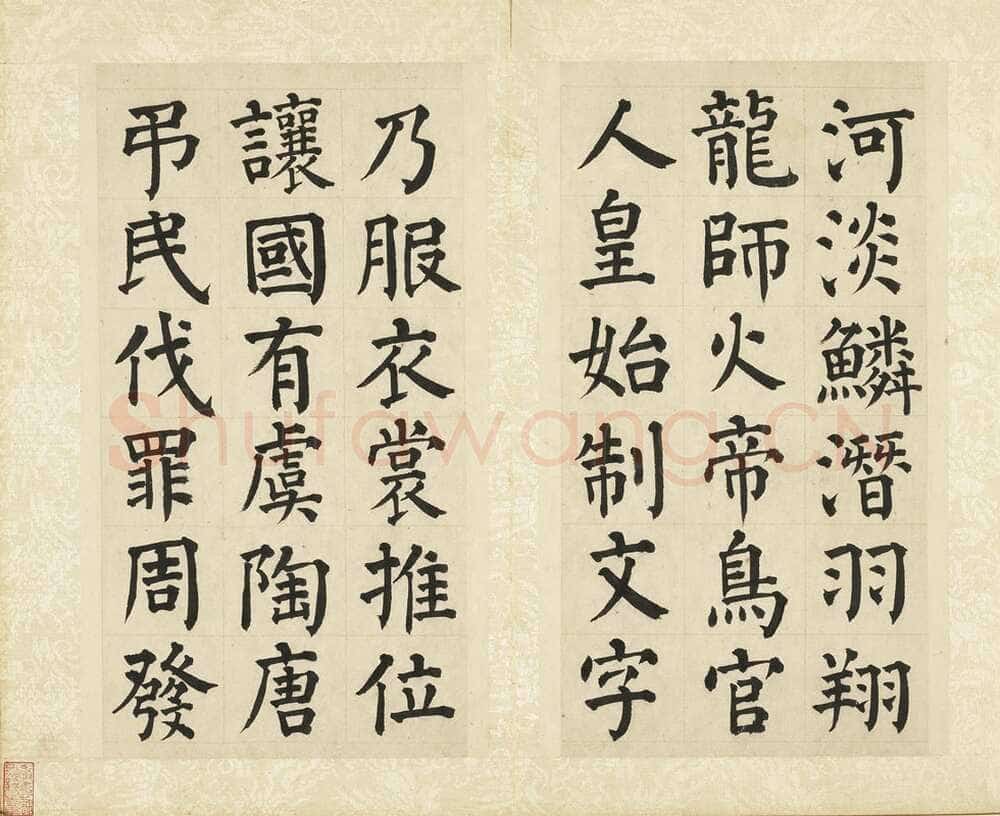 河淡鱗潛羽翔
龍師火帝鳥官
人皇始制文字
乃服衣裳推位
讓國有虞陶唐
弔民伐罪周發
Shufawang.CN